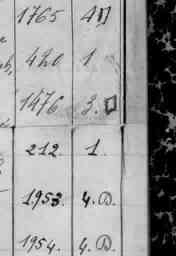 1765 4
420 1
1476 3.
212. 1.
1953. 4. D.
1954. 4. D.